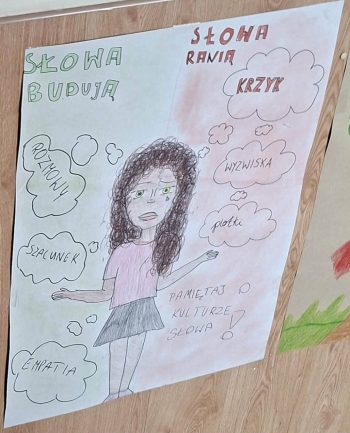 SŁOWA
BUDUJĄ
ROZMOWY
SZACUNEK
EMPATIA
SŁOWA
RANIĄ
KRZYK
WYZWISKA
plotki
PAMIĘTAJ O
KULTURZE
SŁOWA!